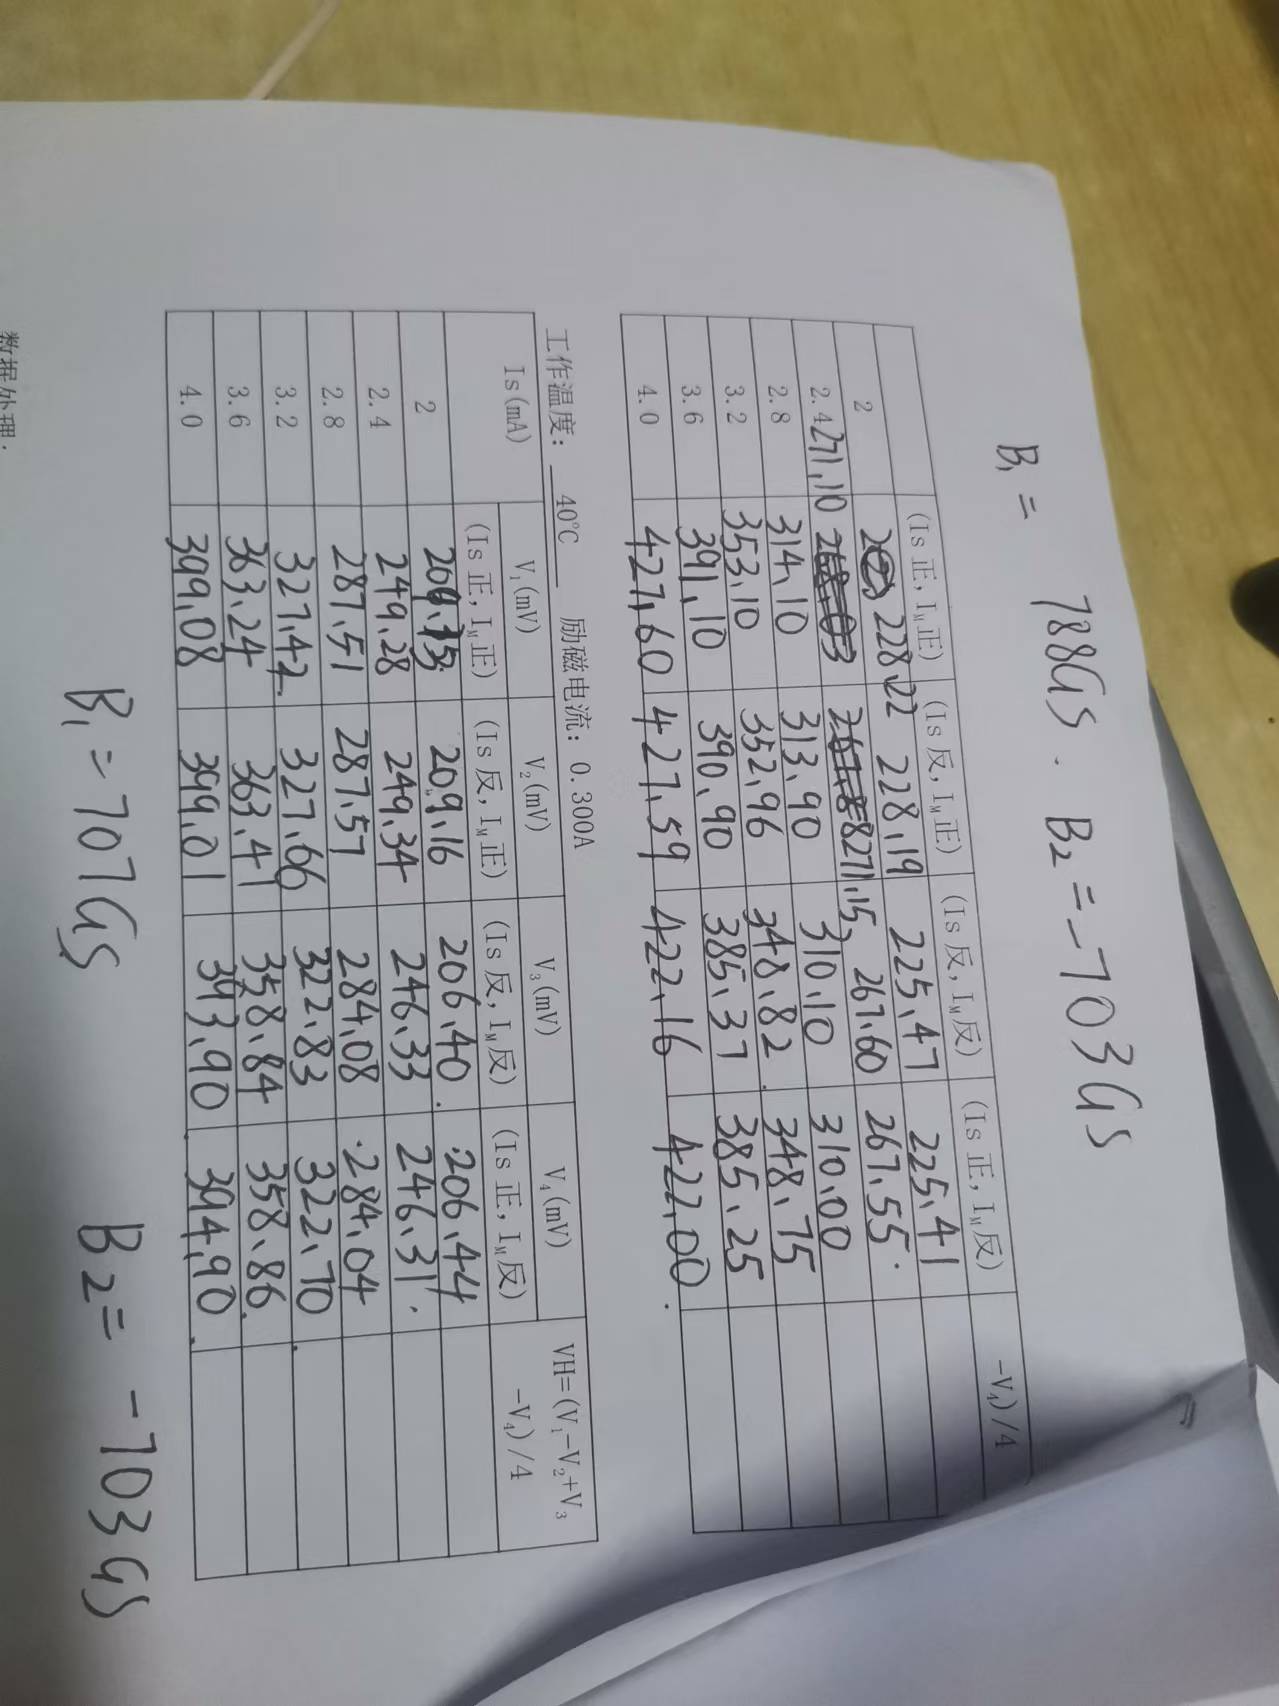 B₁ = 788GS. B₂ = -703GS
(Is正,I_M正) (Is反,I_M正) (Is反,I_M反) (Is正,I_M反) -V₄)/4
2 228.22 228.19 225.47 225.41
2.4 271.10 271.15 267.60 267.55
2.8 314.10 313.90 310.10 310.00
3.2 353.10 352.96 348.82 348.75
3.6 391.10 390.90 385.37 385.25
4.0 427.60 427.59 422.16 422.00
工作温度: 40℃ 励磁电流: 0.300A
Is(mA) V₁(mV) V₂(mV) V₃(mV) V₄(mV) VH=(V₁-V₂+V₃
(Is正,I_M正) (Is反,I_M正) (Is反,I_M反) (Is正,I_M反) -V₄)/4
2 209.16 206.40 206.44
2.4 249.28 249.34 246.33 246.31
2.8 287.51 287.57 284.08 284.04
3.2 327.42 327.66 322.83 322.70
3.6 363.24 363.41 358.84 358.86
4.0 399.08 399.01 393.90 394.90
B₁ = 707GS B₂ = -703GS
数据处理: